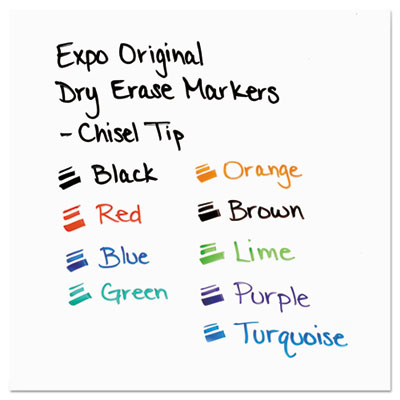 Expo Original
Dry Erase Markers
- Chisel Tip
Black
Red
Blue
Green
Orange
Brown
Lime
Purple
Turquoise